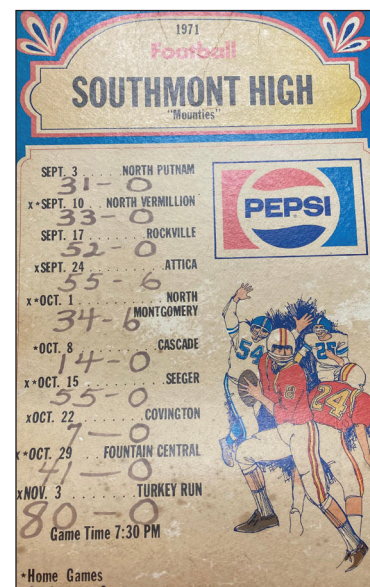 1971
Football
SOUTHMONT HIGH
"Mounties"
SEPT. 3 . . . . . . NORTH PUTNAM
31 - 0
x*SEPT. 10 . . NORTH VERMILLION
33 - 0
SEPT. 17 . . . . . . . . . ROCKVILLE
52 - 0
xSEPT. 24 . . . . . . . . . . . ATTICA
55 - 6
x*OCT. 1 . . . . . . . . . . . . NORTH
MONTGOMERY
34 - 6
*OCT. 8 . . . . . . . . . . CASCADE
14 - 0
x*OCT. 15 . . . . . . . . . . SEEGER
55 - 0
xOCT. 22 . . . . . . . . COVINGTON
7 - 0
x*OCT. 29 . . . FOUNTAIN CENTRAL
41 - 0
xNOV. 3 . . . . . . . TURKEY RUN
80 - 0
Game Time 7:30 PM
*Home Games
PEPSI
54
25
8
24